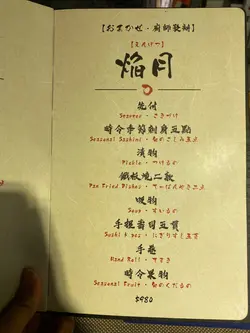 【おまかせ・廚師發辦】
【えんげつ】
焔月
先付
Starter・さきづけ
時令季節刺身五點
Seasonal Sashimi・
漬物
Pickle・つけもの
鐵板燒二款
Pan Fried Dishes・てっぱんやき二点
吸物
Soup・すいもの
手握壽司五貫
Sushi 5 pcs・にぎりずし五貫
手卷
Hand Roll・てまき
時令果物
Seasonal Fruit・
$980